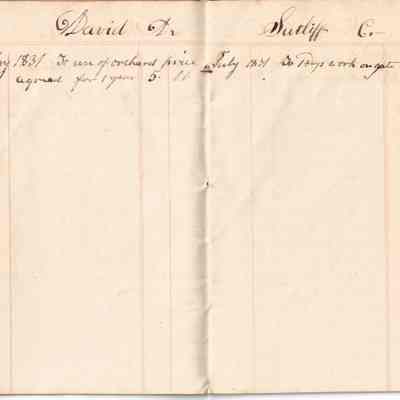 David Dr
1831 To use of orchard price
agreed for 1 year 5
Sutliff Cr
July 1831 To Days work on gate